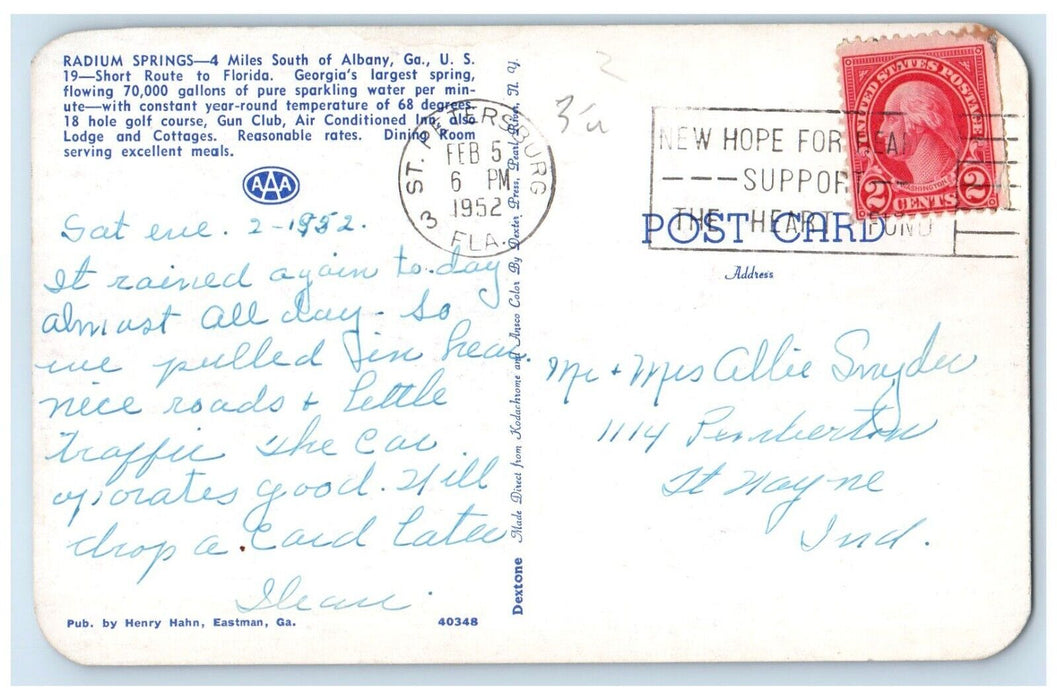 RADIUM SPRINGS—4 Miles South of Albany, Ga., U. S.
19—Short Route to Florida. Georgia's largest spring,
flowing 70,000 gallons of pure sparkling water per min-
ute—with constant year-round temperature of 68 degrees.
18 hole golf course, Gun Club, Air Conditioned Inn, also
Lodge and Cottages. Reasonable rates. Dining Room
serving excellent meals.
AAA
Sat eve. 2-1952.
It rained again to-day
almost all day - so
we pulled in hear.
nice roads & little
traffic the car
oporates good. Will
drop a card later
Pub. by Henry Hahn, Eastman, Ga.
40348
Dextone Made Direct from Kodachrome and Ansco Color By Dexter Press, Pearl River, N. Y.
ST. PETERSBURG
FEB 5
6 PM
1952
3 FLA.
NEW HOPE FOR HEA
SUPPORT
THE HEART FUND
UNITED STATES POSTAGE
WASHINGTON
2 CENTS 2
POST CARD
Address
Mr + Mrs Allie Snyder
1114 Pemberton
Ft Wayne
Ind.